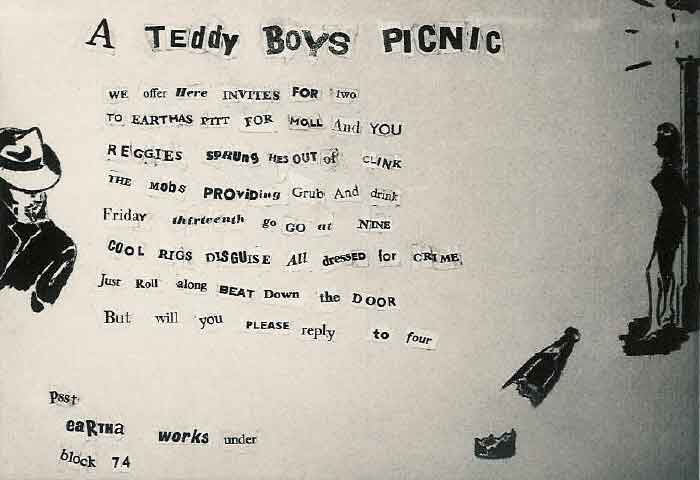 A TEddy BoyS PICNIC
WE offer Here INVITES FOR two
TO EARTHAS PITT FOR MOLL And YOU
REGGIES sPRUng HES OUT of CLINK
THE MobS PROViding Grub And drink
Friday thirteenth go GO at NINE
COOL RIGS DISGUISE All dresSED for CRIME
Just Roll along BEAT Down the DOOR
But will you PLEASE reply to four
Psst
eaRTHa works under
block 74